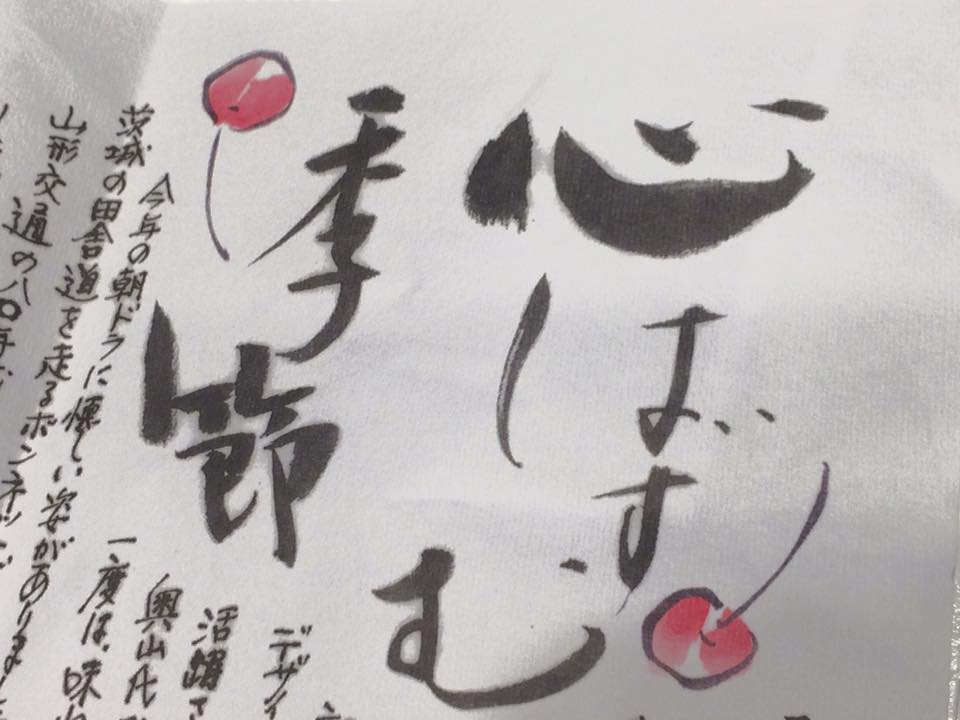 心はずむ
季節
デザイ
活躍
奥山氏
一度は、味
今年の朝ドラに懐しい姿がありま
茨城の田舎道を走るボンネッ
山形交通の八〇年